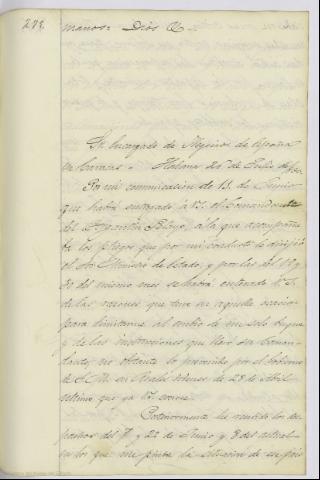 273.
manos = Dios &
Sr. Encargado de Negocios de España
en Caracas = Habana 20 de Julio de
Por mi comunicacion de 13 de Junio
que habrá entregado á V.S. el Comandante
del Bergantin Pelayo, á la que acompaña
ba los pliegos que por mi conducto le dirijió
el Sor. Ministro de Estado, y por las del 19 y
30 del mismo mes se habrá enterado V.S.
de las razones que tuve en aquella ocasion
para limitarme al embio de un solo buque
y de las instrucciones que llevó su Coman
dante, no obstante lo prevenido por el Gobierno
de S.M. en Reales ordenes de 28 de Abril
ultimo que ya V.S. conoce.
Posteriormente he recibido los des
pachos del 7 y 22 de Junio y 8 del actual
en los que me pinta la situacion de ese pais